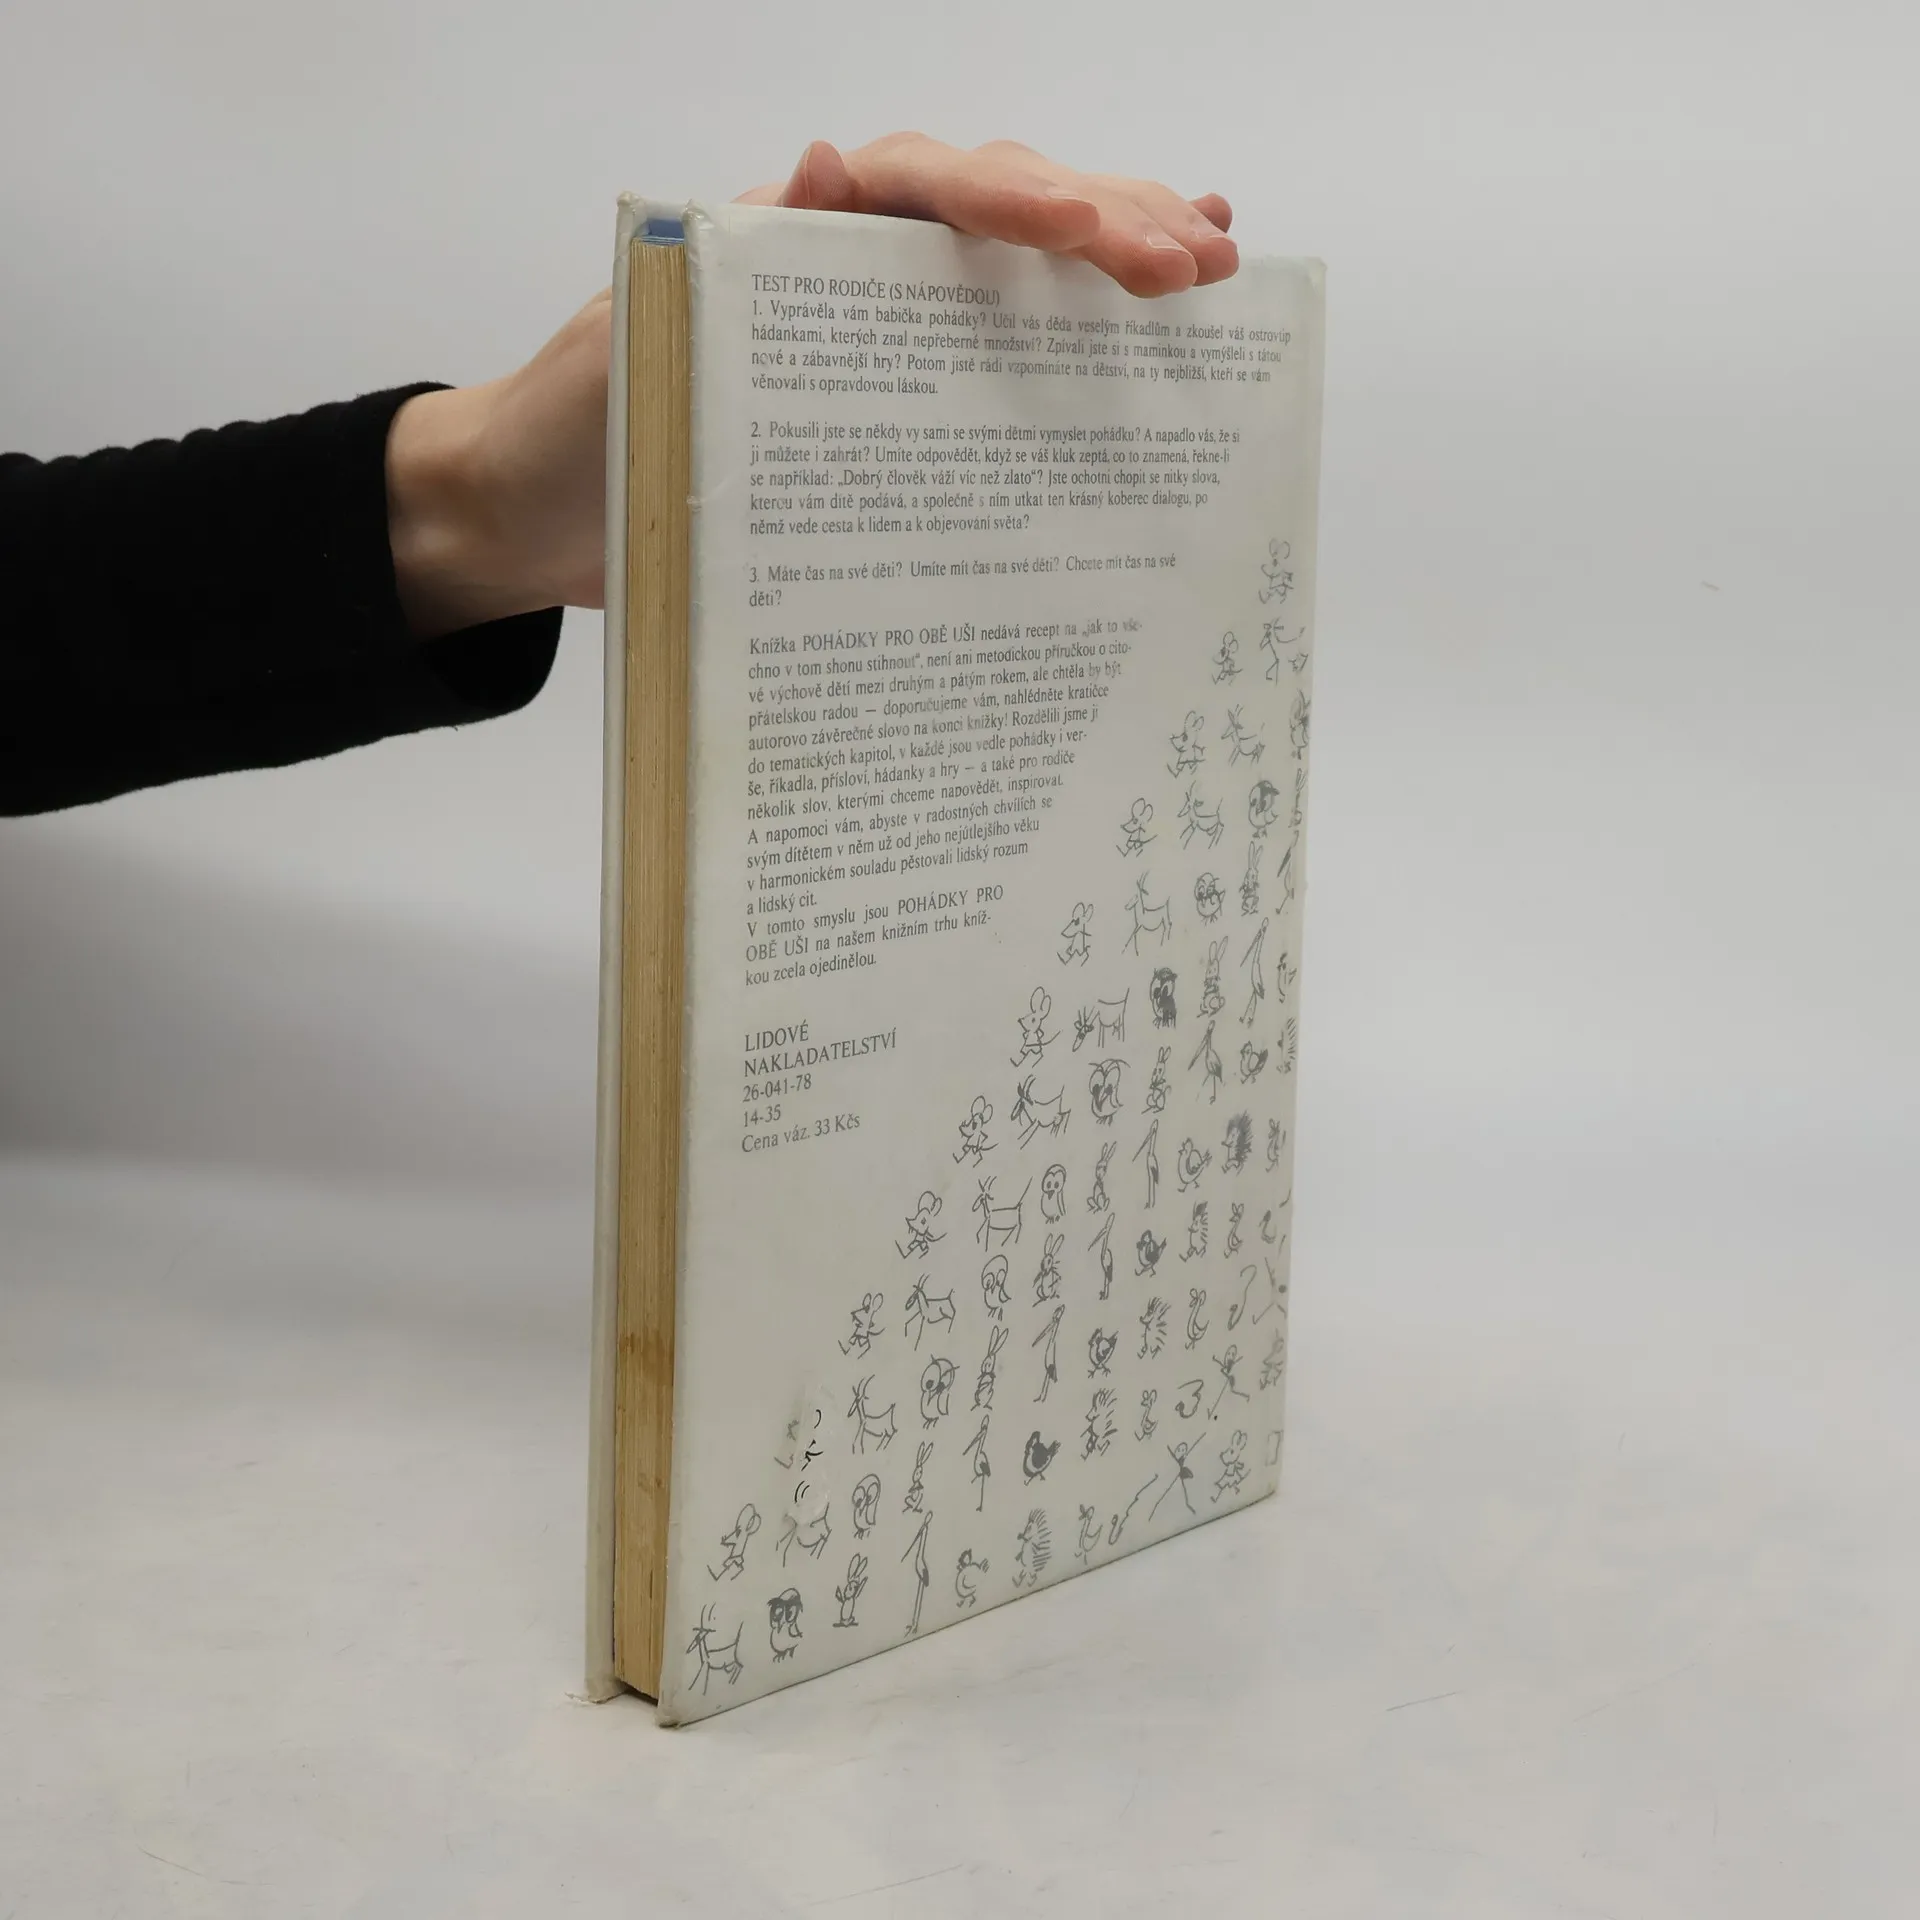 TEST PRO RODIČE (S NÁPOVĚDOU)
1. Vyprávěla vám babička pohádky? Učil vás děda veselým říkadlům a zkoušel váš ostrovtip
hádankami, kterých znal nepřeberné množství? Zpívali jste si s maminkou a vymýšleli s tátou
nové a zábavnější hry? Potom jistě rádi vzpomínáte na dětství, na ty nejbližší, kteří se vám
věnovali s opravdovou láskou.
2. Pokusili jste se někdy vy sami se svými dětmi vymyslet pohádku? A napadlo vás, že si
ji můžete i zahrát? Umíte odpovědět, když se váš kluk zeptá, co to znamená, řekne-li
se například: „Dobrý člověk váží víc než zlato“? Jste ochotni chopit se nitky slova,
kterou vám dítě podává, a společně s ním utkat ten krásný koberec dialogu, po
němž vede cesta k lidem a k objevování světa?
3. Máte čas na své děti? Umíte mít čas na své děti? Chcete mít čas na své
děti?
Knížka POHÁDKY PRO OBĚ UŠI nedává recept na „jak to vše-
chno v tom shonu stihnout“, není ani metodickou příručkou o cito-
vé výchově dětí mezi druhým a pátým rokem, ale chtěla by být
přátelskou radou — doporučujeme vám, nahlédněte kratičce
autorovo závěrečné slovo na konci knížky! Rozdělili jsme ji
do tematických kapitol, v každé jsou vedle pohádky i ver-
še, říkadla, přísloví, hádanky a hry — a také pro rodiče
několik slov, kterými chceme napovědět, inspirovat.
A napomoci vám, abyste v radostných chvílích se
svým dítětem v něm už od jeho nejútlejšího věku
v harmonickém souladu pěstovali lidský rozum
a lidský cit.
V tomto smyslu jsou POHÁDKY PRO
OBĚ UŠI na našem knižním trhu kníž-
kou zcela ojedinělou.
LIDOVÉ
NAKLADATELSTVÍ
26-041-78
14-35
Cena váz. 33 Kčs